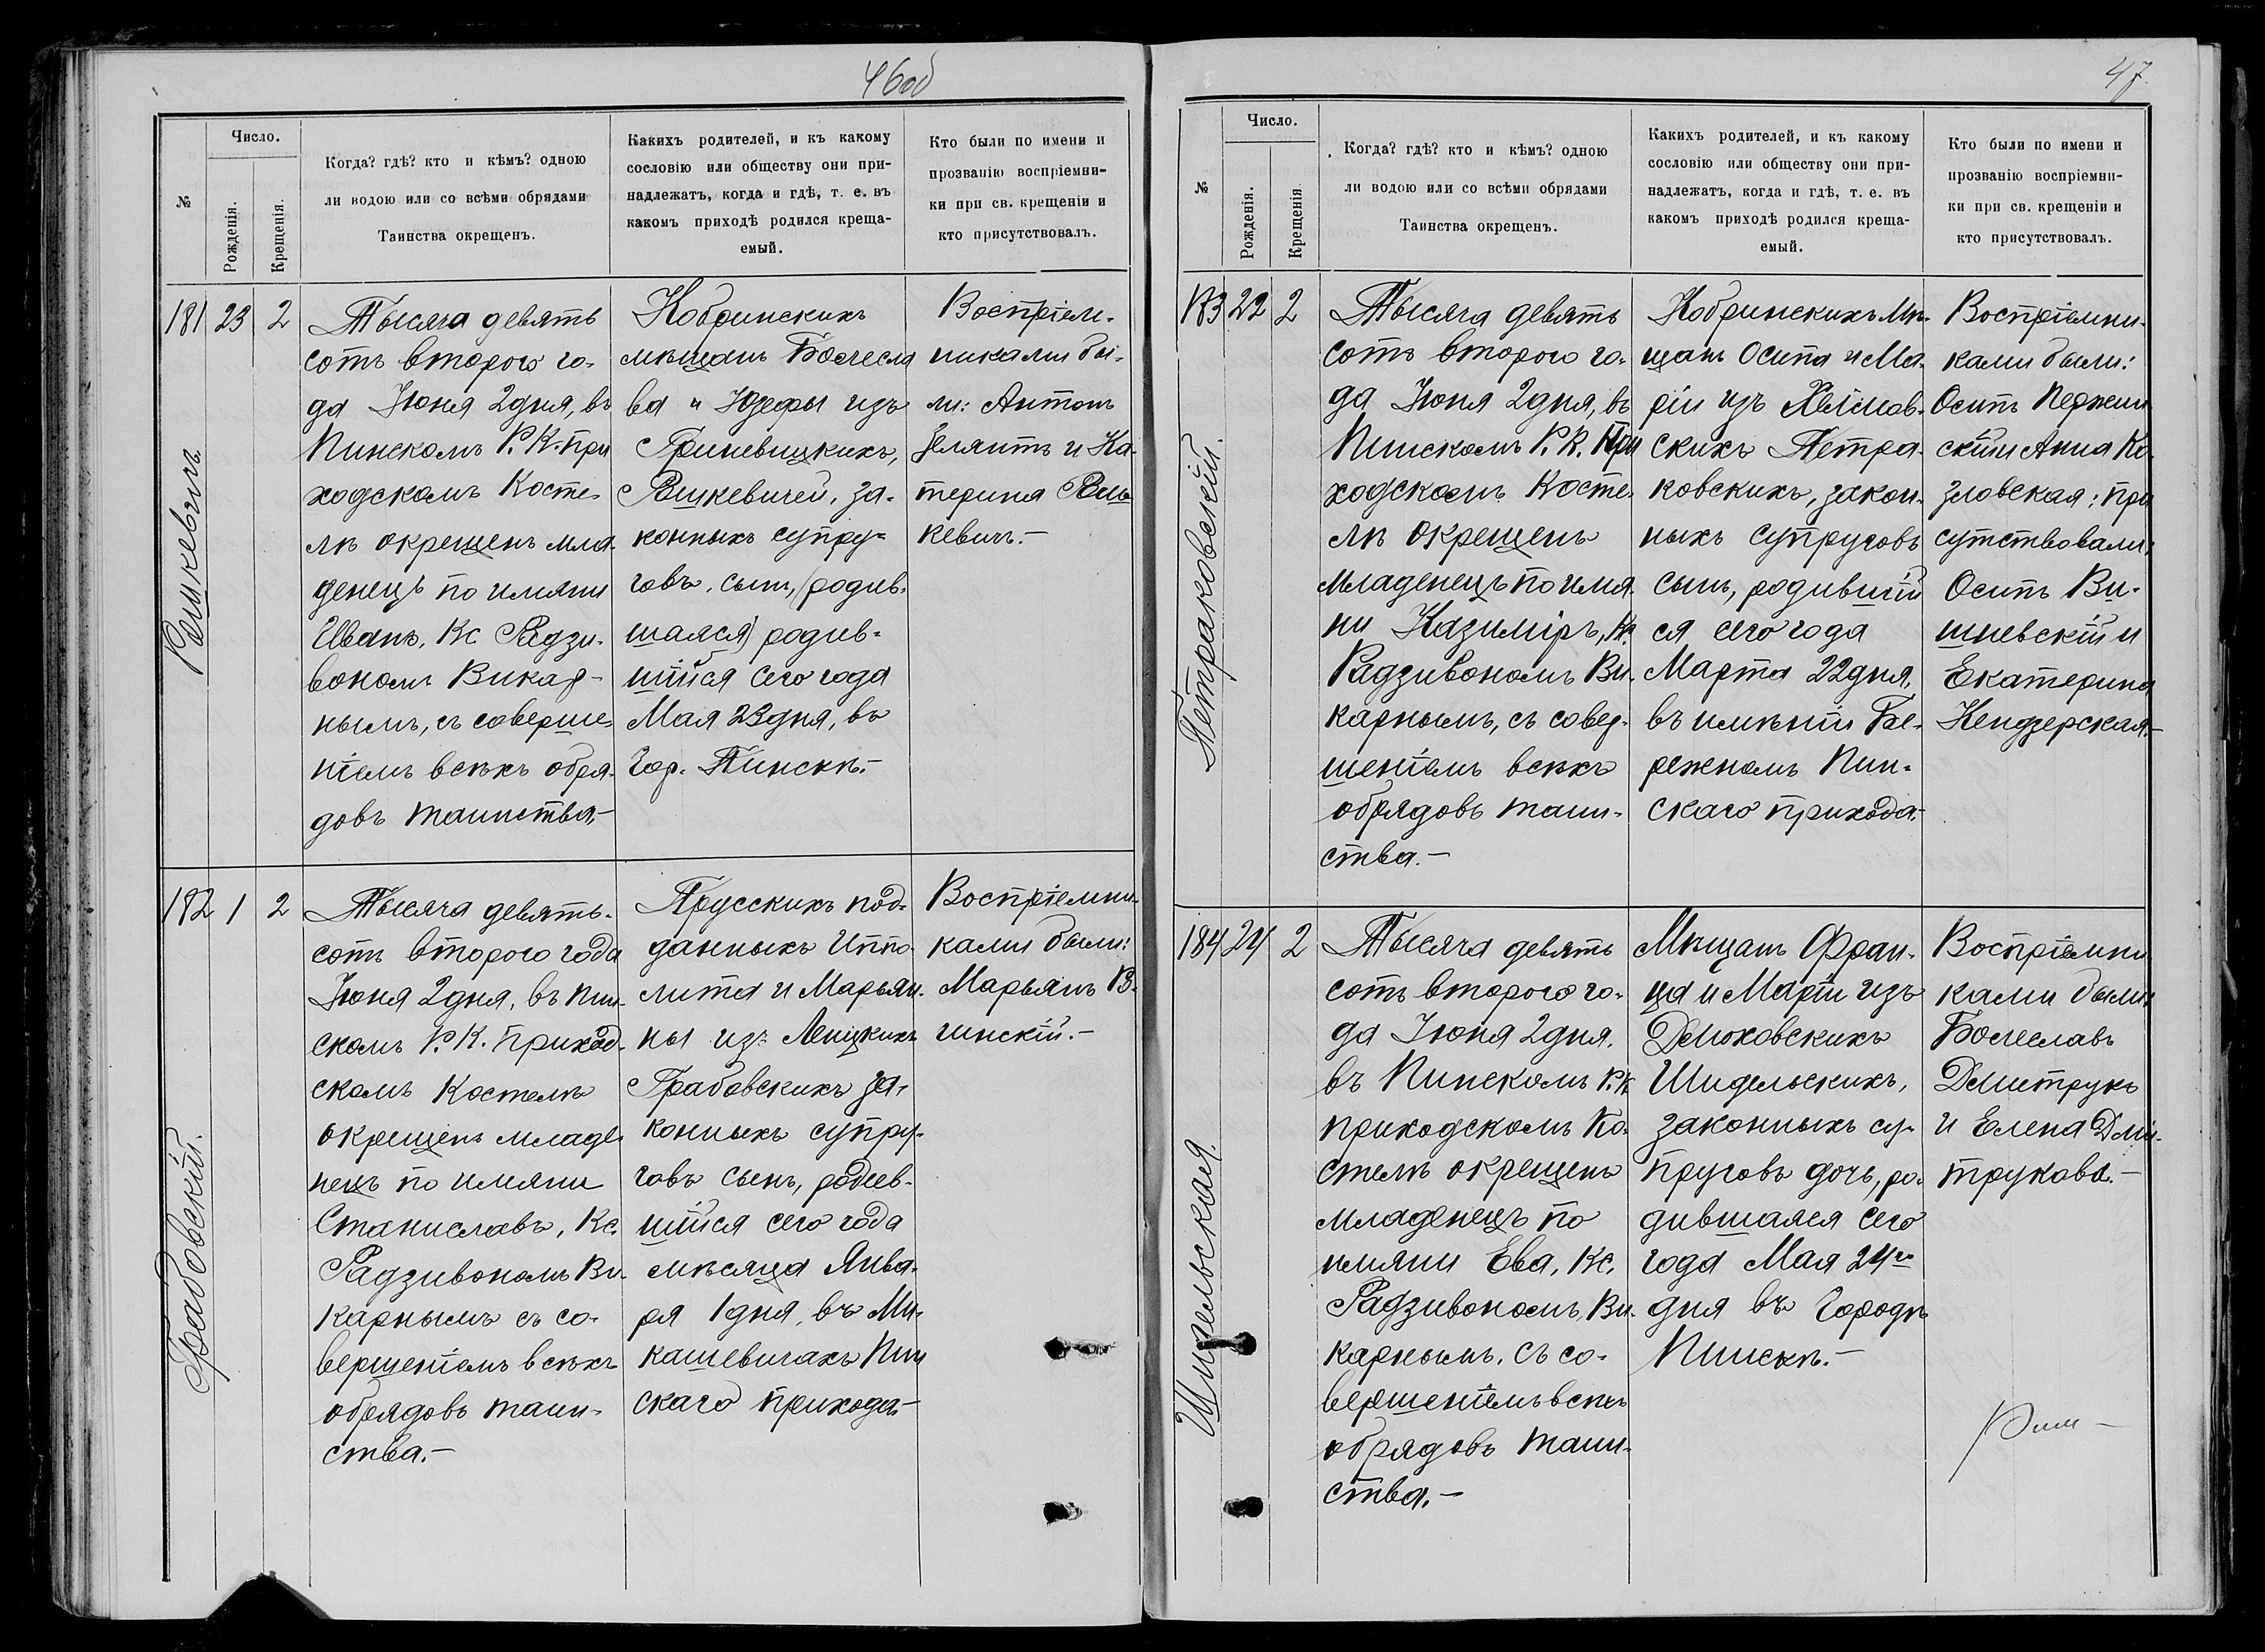 46об
№
Число.
Рожденія.
Крещенія.
Когда? гдѣ? кто и кѣмъ? одною
ли водою или со всѣми обрядами
Таинства окрещенъ.
Какихъ родителей, и къ какому
сословію или обществу они при-
надлежатъ, когда и гдѣ, т. е. въ
какомъ приходѣ родился креща-
емый.
Кто были по имени и
прозванію воспріемни-
ки при св. крещеніи и
кто присутствовалъ.
181 23 2
Рашкевичъ.
Тысяча девять
сотъ второго го-
да Іюня 2 дня, въ
Пинскомъ Р. К. При
ходскомъ Косте-
лѣ окрещенъ мла-
денецъ по имяни
Иванъ, Кс. Радзи-
вономъ Викар-
нымъ, съ соверше-
ніемъ всѣхъ обря-
довъ таинства.-
Кобринскихъ
мѣщанъ Болесла
ва и Юзефы изъ
Гриневицкихъ,
Рашкевичей, за-
конныхъ супру-
говъ, сынъ, (родив-
шаяся) родив-
шійся сего года
Мая 23 дня, въ
Гор. Пинскѣ.-
Воспріем-
никами бы-
ли: Антонъ
и Ка-
терина Раш-
кевичъ.-
182 1 2
Грабовскій.
Тысяча девять-
сотъ второго года
Іюня 2 дня, въ Пин-
скомъ Р. К. Приход-
скомъ Костелѣ
окрещенъ младе-
нецъ по имяни
Станиславъ, Кс.
Радзивономъ Ви-
карнымъ съ со-
вершеніемъ всѣхъ
обрядовъ таин-
ства.-
Прусскихъ под-
данныхъ Иппо-
лита и Марьян-
ны изъ Ленцкихъ
Грабовскихъ за-
конныхъ супру-
говъ сынъ, родив-
шійся сего года
мѣсяца Янва-
ря 1 дня, въ Ми-
кашевичахъ Пин
скаго прихода.-
Воспріемни-
ками были:
Марьянъ
гинскій.-
47
№
Число.
Рожденія.
Крещенія.
Когда? гдѣ? кто и кѣмъ? одною
ли водою или со всѣми обрядами
Таинства окрещенъ.
Какихъ родителей, и къ какому
сословію или обществу они при-
надлежатъ, когда и гдѣ, т. е. въ
какомъ приходѣ родился креща-
емый.
Кто были по имени и
прозванію воспріемни-
ки при св. крещеніи и
кто присутствовалъ.
183 22 2
Петраковскій.
Тысяча девять
сотъ второго го-
да Іюня 2 дня, въ
Пинскомъ Р. К. При
ходскомъ Косте-
лѣ окрещенъ
младенецъ по имя-
ни Казиміръ, Кс.
Радзивономъ Ви-
карнымъ, съ совер-
шеніемъ всѣхъ
обрядовъ таин-
ства.-
Кобринскихъ мѣ-
щанъ Осипа и Ма-
ріи изъ Хелмов-
скихъ Петра-
ковскихъ, закон-
ныхъ супруговъ
сынъ, родившій
ся сего года
Марта 22 дня,
въ имѣніи Бе-
режномъ Пин-
скаго прихода.-
Воспріемни-
ками были:
Осипъ
скій и Анна Ко-
зловская; при
сутствовали:
Осипъ Ви-
шневскій и
Екатерина
Кендзерская.-
184 24 2
Шидельская.
Тысяча девять
сотъ второго го-
да Іюня 2 дня.
въ Пинскомъ Р. К.
приходскомъ Ко-
стелѣ окрещенъ
младенецъ по
имяни Ева, Кс.
Радзивономъ, Ви-
карнымъ, съ со-
вершеніемъ всѣхъ
обрядовъ таин-
ства.-
Мѣщанъ Фран-
ца и Маріи изъ
Демоховскихъ
Шидельскихъ,
законныхъ су-
пруговъ дочь, ро-
дившаяся сего
года Мая 24го
дня въ городѣ
Пинскѣ.-
Воспріемни
ками были:
Болеславъ
Дмитрукъ
и Елена Дми-
трукова.-